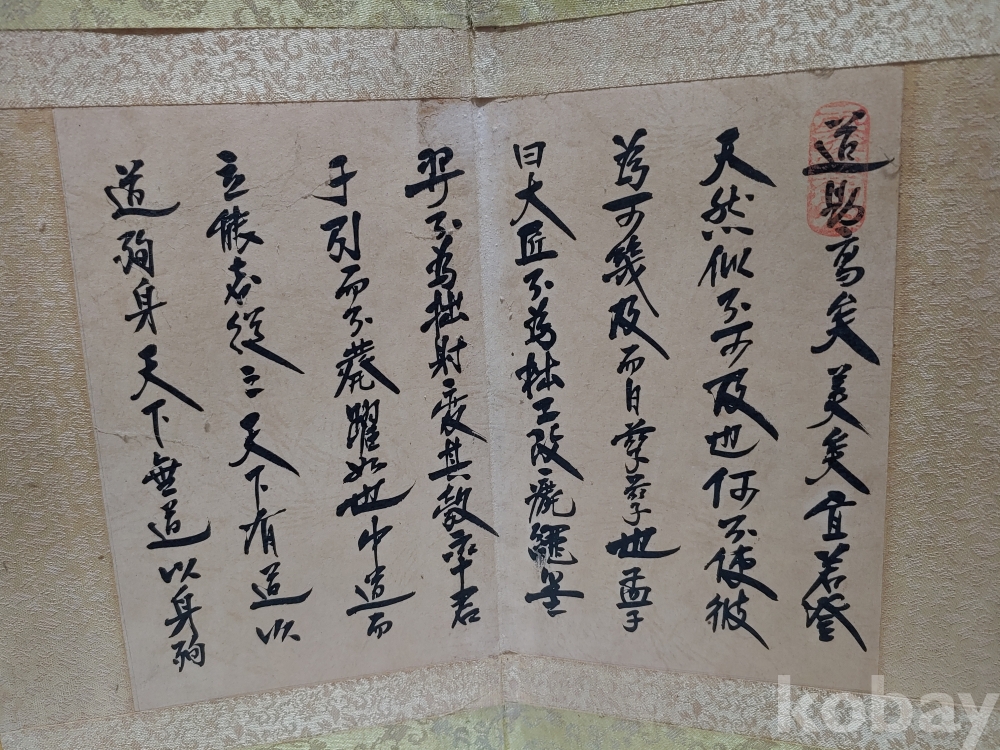 道則高矣美矣宜若登
天然似不可及也何不使彼
為可幾及而日孳孳也孟子
曰大匠不為拙工改廢繩墨
羿不為拙射變其彀率君
子引而不發躍如也中道而
立能者從之天下有道以
道殉身天下無道以身殉
kobay